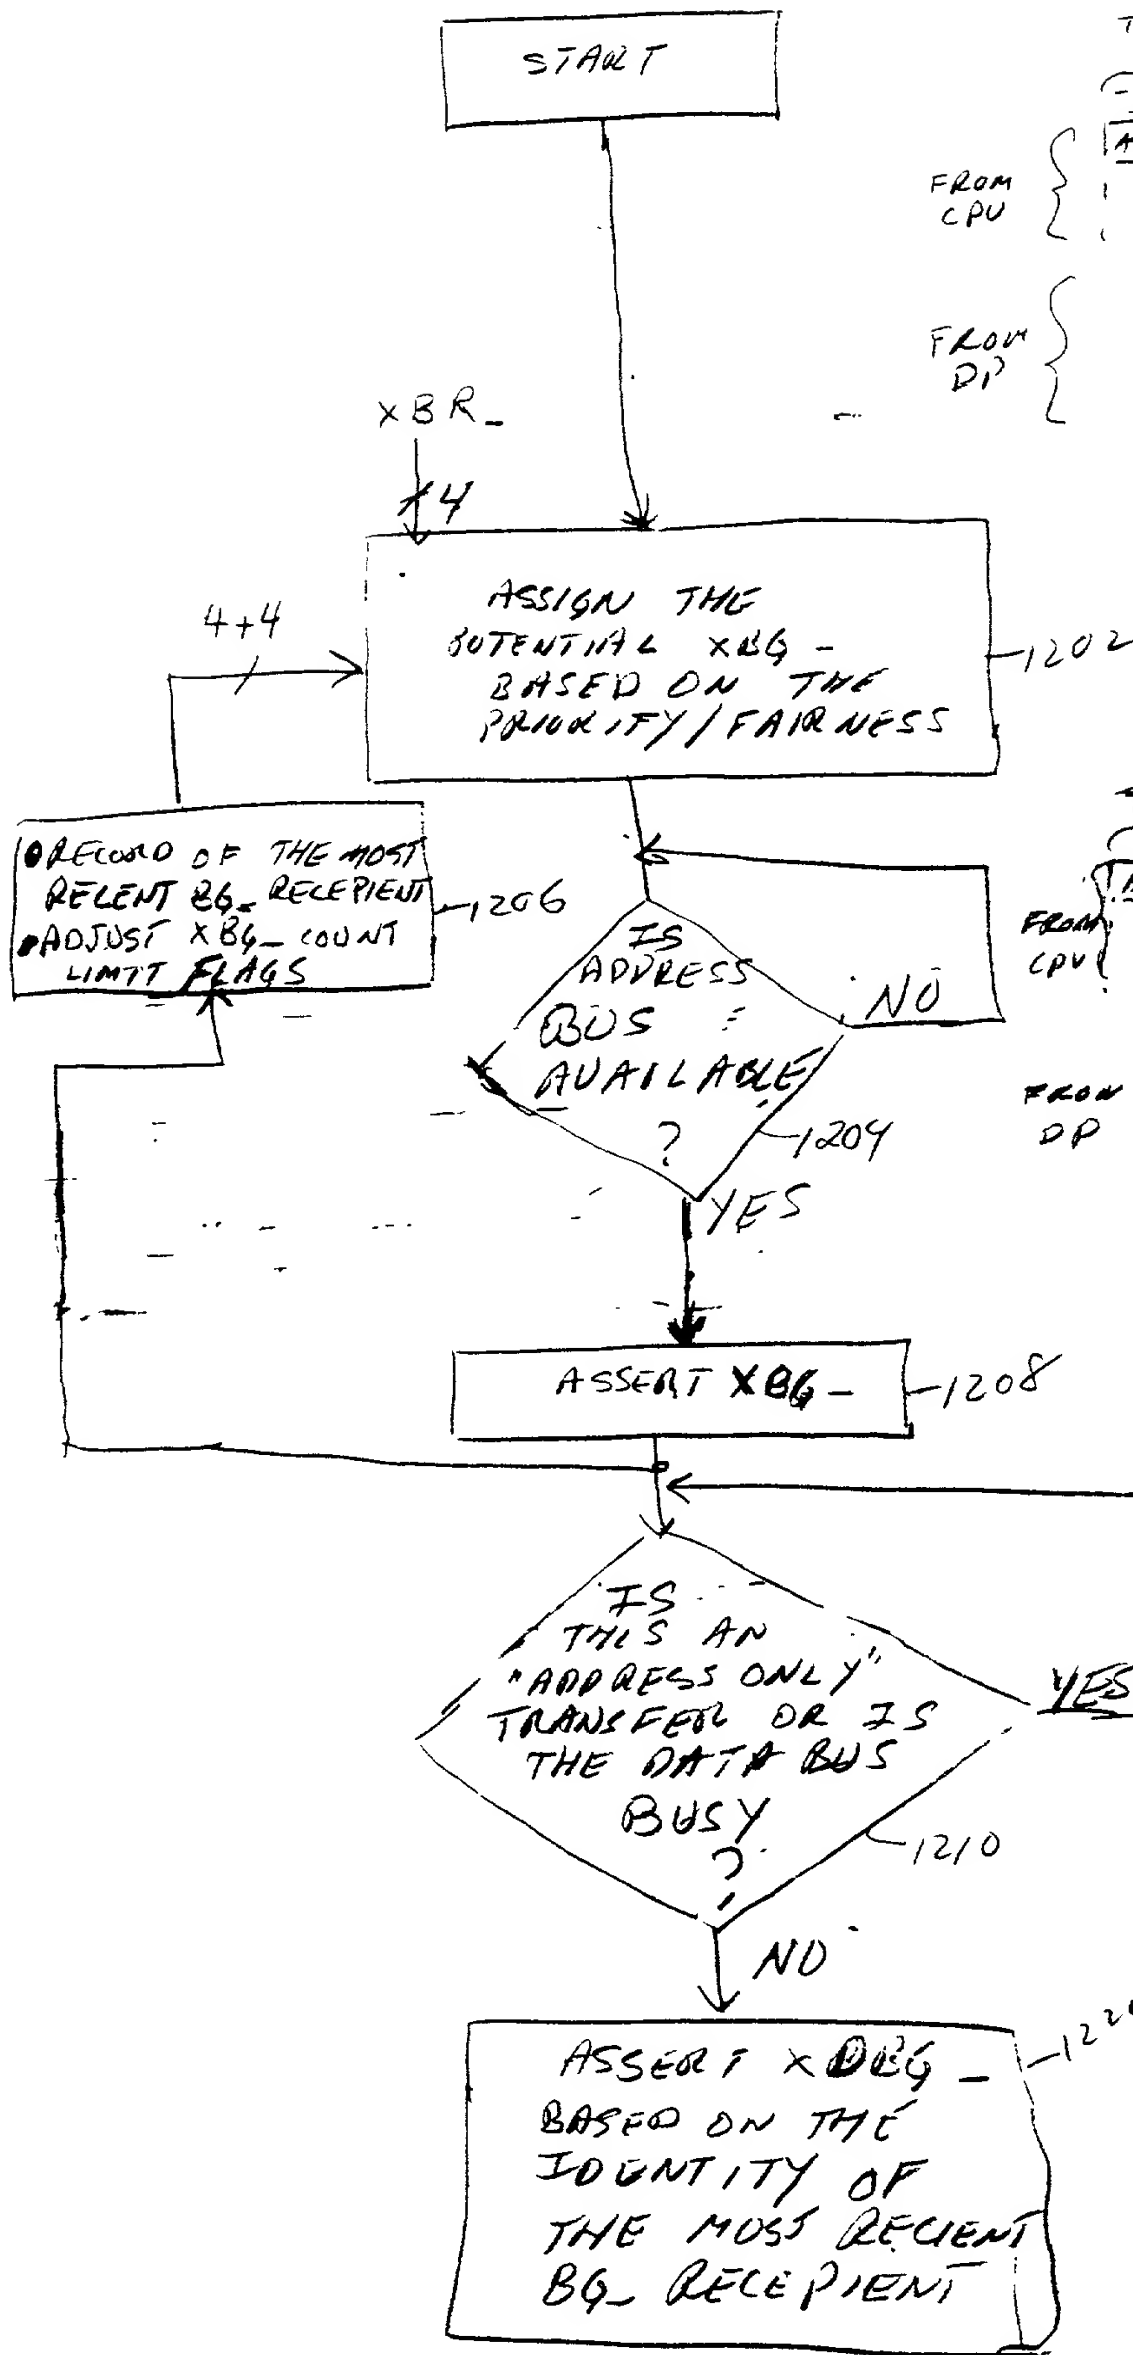 START
FROM
CPU
FROM
DP
XBR_
4
4+4
ASSIGN THE
POTENTIAL XBG_
BASED ON THE
PRIORITY/FAIRNESS
1202
RECORD OF THE MOST
RECENT BG_ RECEPIENT
ADJUST XBG_ COUNT
LIMIT FLAGS
1206
IS
ADDRESS
BUS
AVAILABLE
?
NO
1204
YES
FROM
CPU
FROM
DP
ASSERT XBG_
1208
IS
THIS AN
"ADDRESS ONLY"
TRANSFER OR IS
THE DATA BUS
BUSY
?
YES
1210
NO
ASSERT XDBG_
BASED ON THE
IDENTITY OF
THE MOST RECIENT
BG_ RECEPIENT